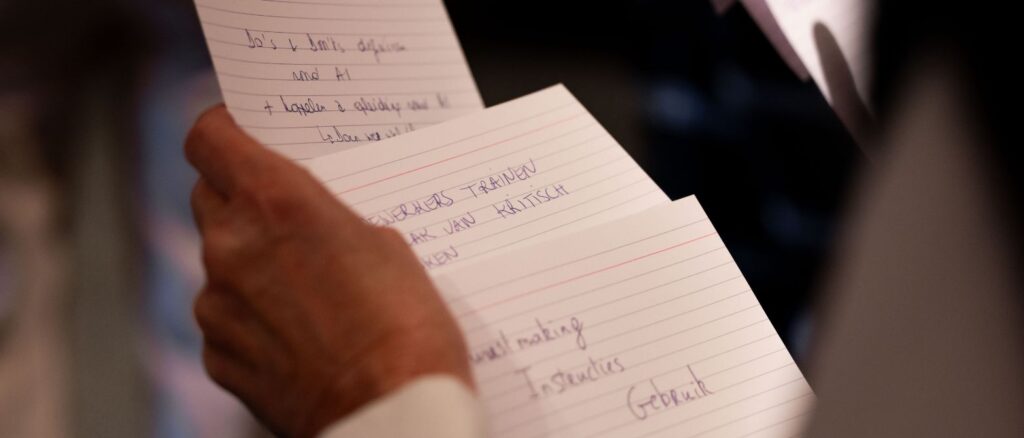 Do's & Don'ts definiëren
rond AI
+ koppelen a opleiding rond AI
EWERKERS TRAINEN
AAK VAN KRITISCH
KEN
making
Instructies
Gebruik